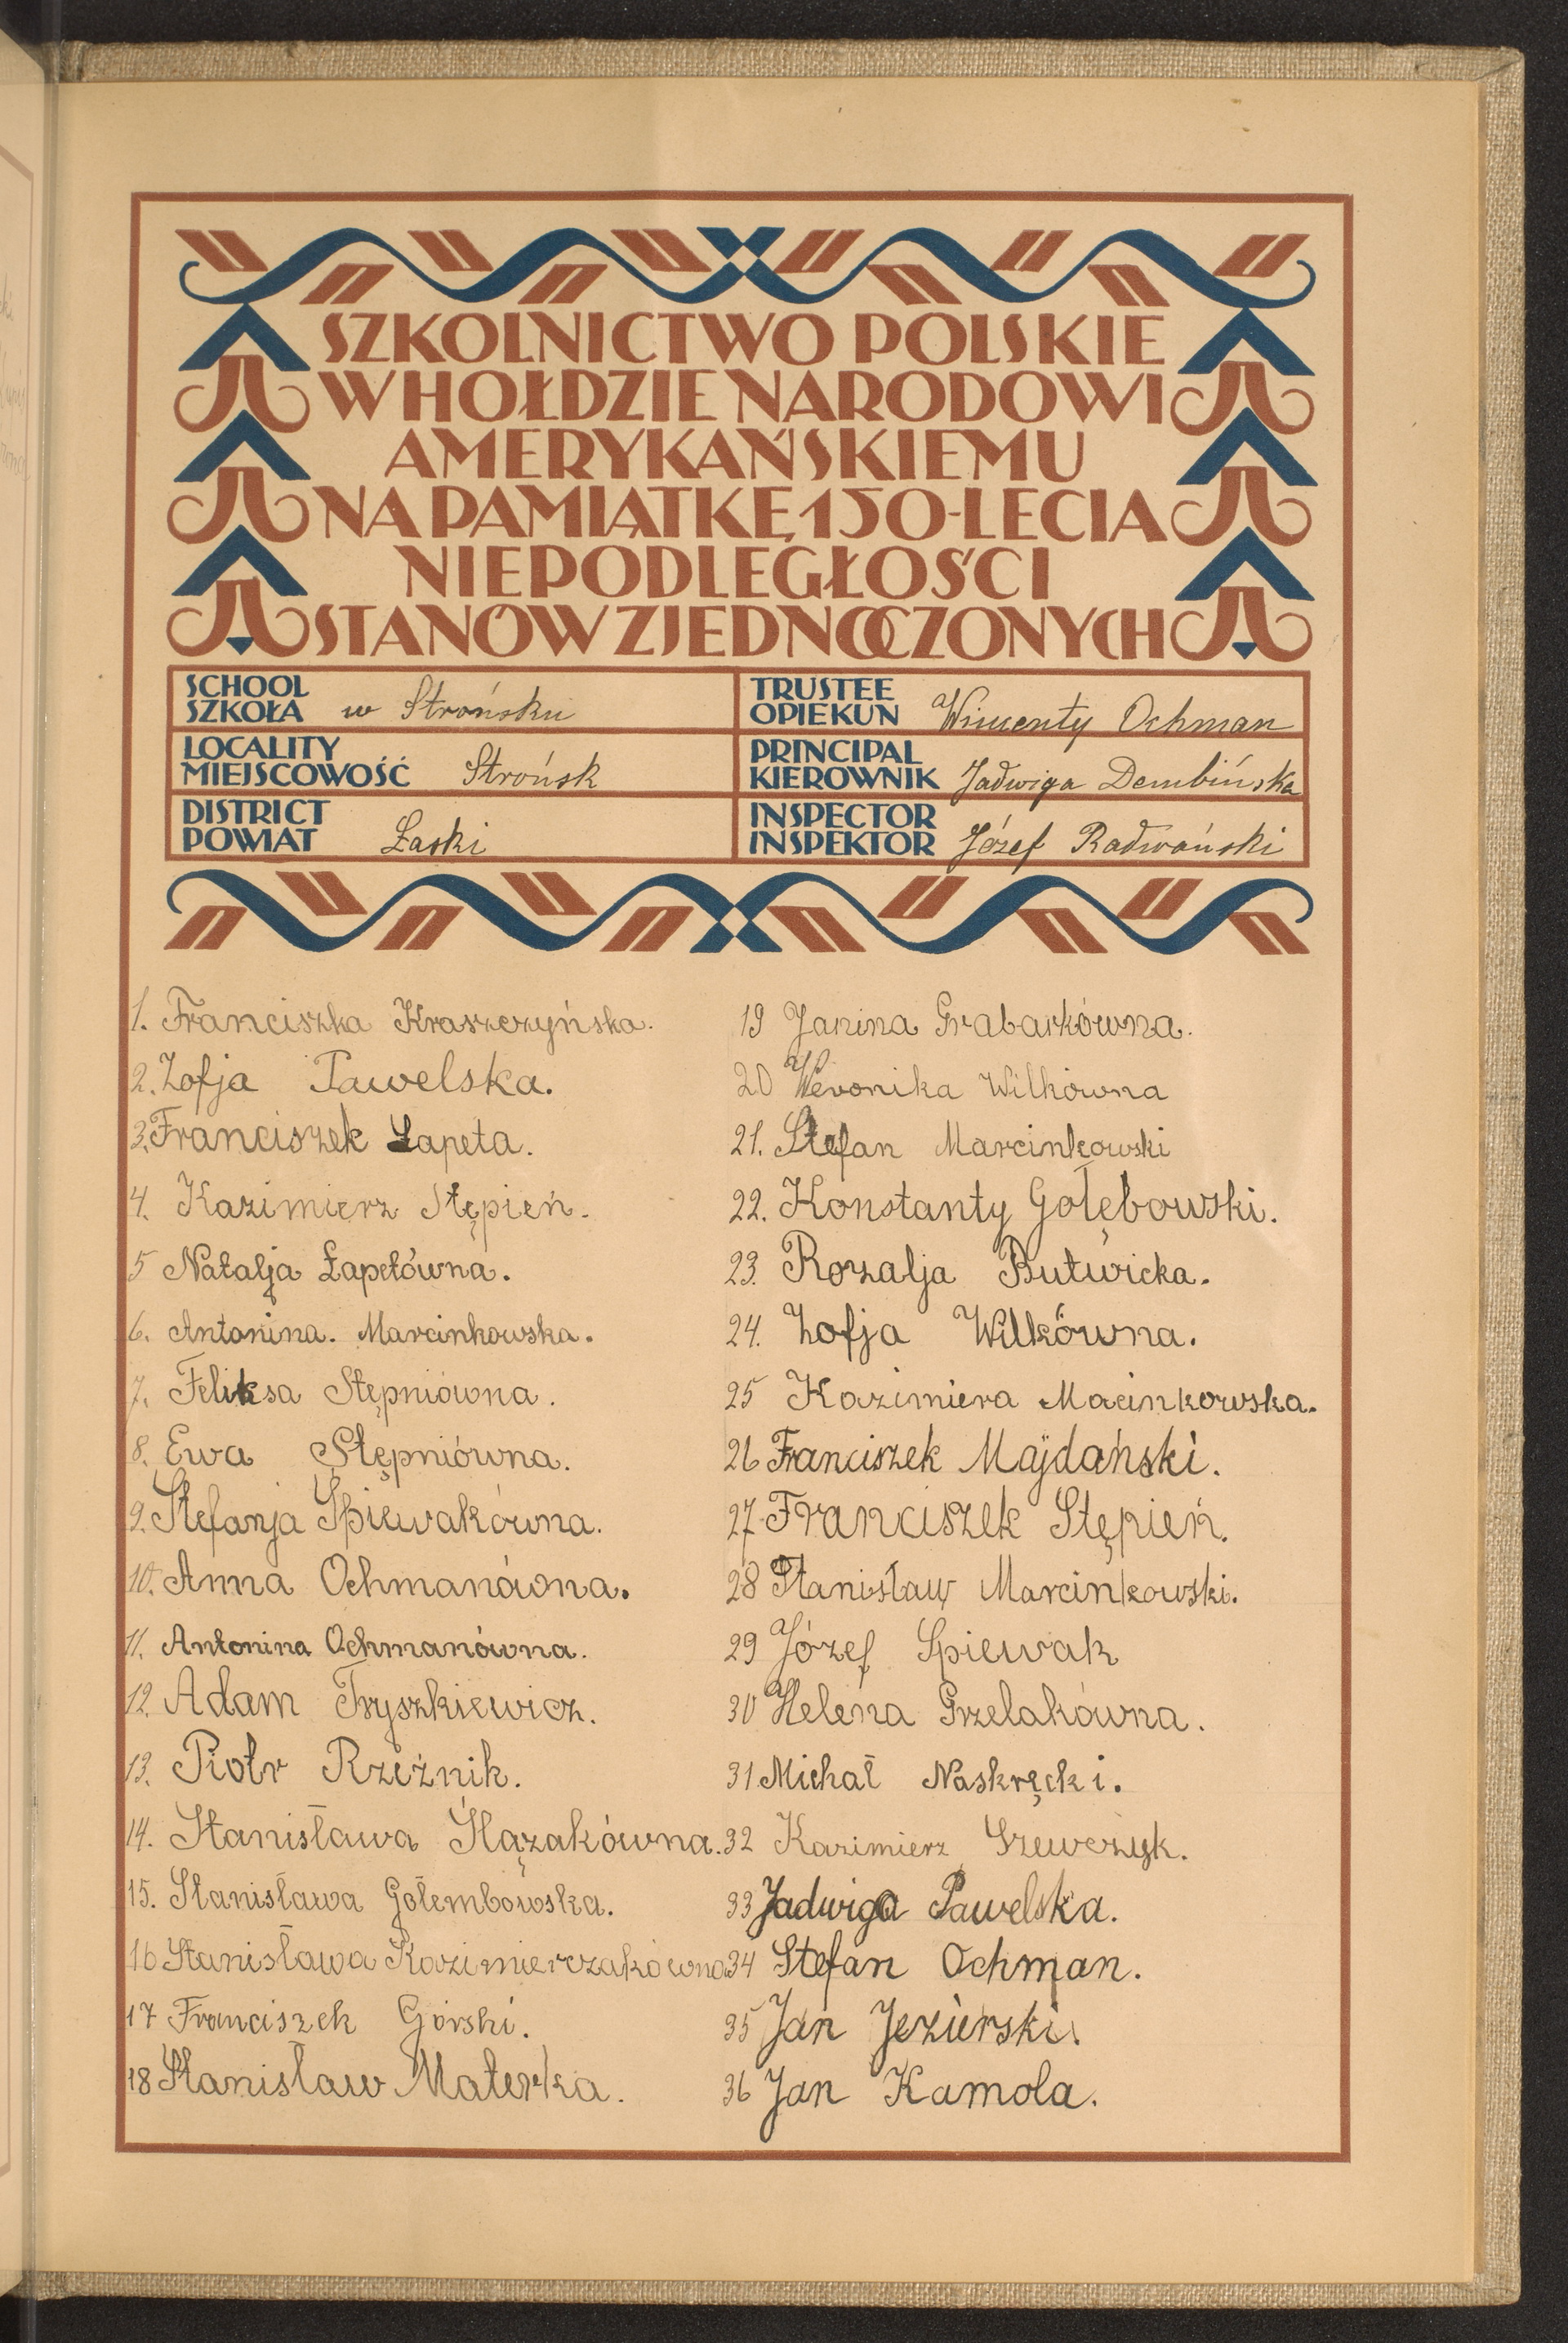 SZKOLNICTWO POLSKIE
W HOŁDZIE NARODOWI
AMERYKAŃSKIEMU
NA PAMIĄTKĘ 150-LECIA
NIEPODLEGŁOŚCI
STANÓW ZJEDNOCZONYCH
SCHOOL
SZKOŁA w Strońsku
LOCALITY
MIEJSCOWOŚĆ Strońsk
DISTRICT
POWIAT Łaski
TRUSTEE
OPIEKUN Wincenty Ochman
PRINCIPAL
KIEROWNIK Jadwiga Dembińska
INSPECTOR
INSPEKTOR Józef Radwański
1. Franciszka Kraszczyńska.
2. Zofja Pawelska.
3. Franciszek Łapeta.
4. Kazimierz Stępień.
5 Natalja Łapetówna.
6. Antonina. Marcinkowska.
7. Feliksa Stępniówna.
8. Ewa Stępniówna.
9. Stefanja Śpiewakówna.
10. Anna Ochmanówna.
11. Antonina Ochmanówna.
12. Adam Fryszkiewicz.
13. Piotr Rzeżnik.
14. Stanisława Ślązakówna.
15. Stanisława Gołembowska.
16 Stanisława Kazimierczakówna
17 Franciszek Górski.
18 Stanisław Materka.
19 Janina Grabarkówna.
20 Weronika Wilkówna
21. Stefan Marcinkowski
22. Konstanty Gołębowski.
23. Rozalja Butwicka.
24. Zofja Wilkówna.
25 Kazimiera Macinkowska.
26 Franciszek Majdański.
27 Franciszek Stępień.
28 Stanisław Marcinkowski.
29 Józef Spiewak
30 Helena Grzelakówna.
31. Michał Naskręcki.
32 Kazimierz Szewczyk.
33 Jadwiga Pawelska.
34 Stefan Ochman.
35 Jan Jezierski.
36 Jan Kamola.